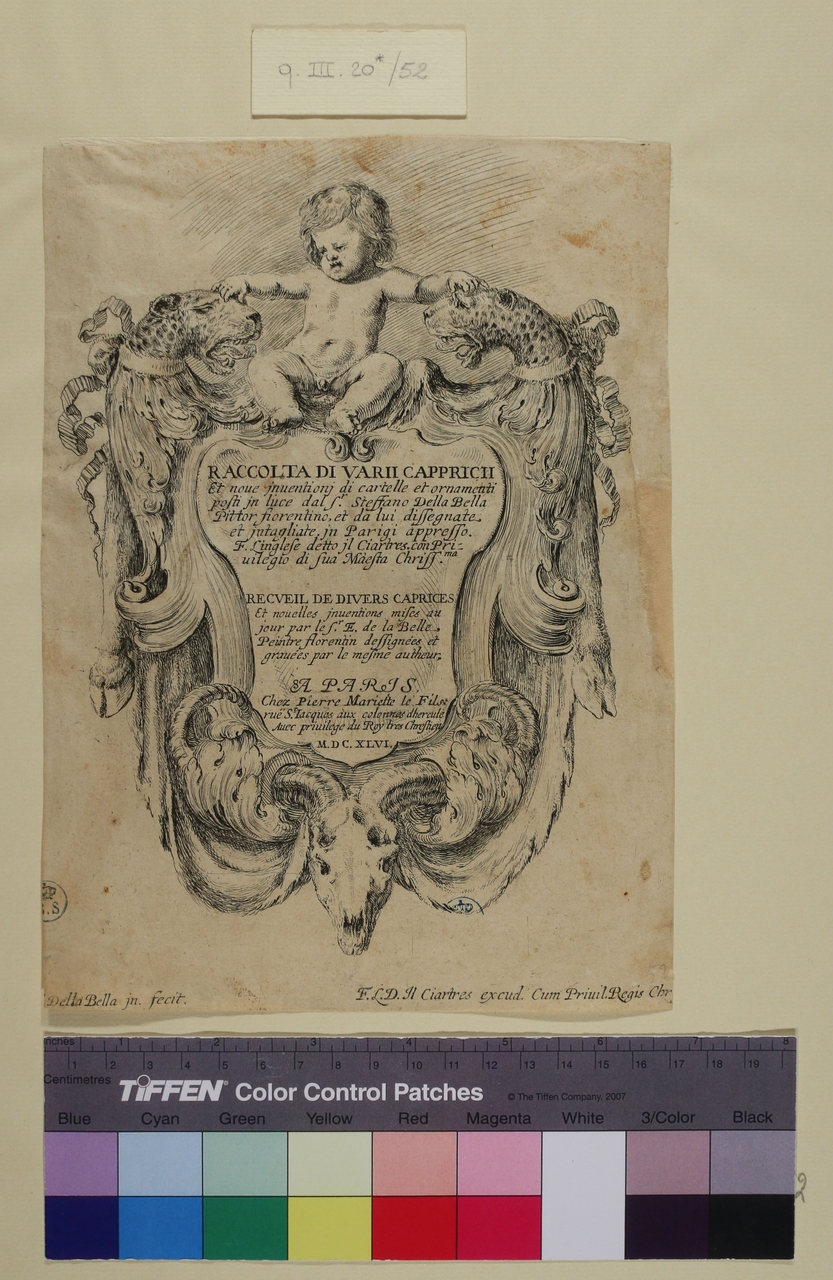 q. III. 20*/52
RACCOLTA DI VARII CAPPRICII
Et noue jnuentionj di cartelle et ornamenti
posti jn luce dal s.r Steffano Della Bella
Pittor fiorentino, et da lui dissegnate
et jntagliate, jn Parigi appresso.
F. L'inglese detto jl Ciartres. con Pri-
uilegio di sua Maesta Chriss.ma
RECVEIL DE DIVERS CAPRICES
Et nouelles jnuentions mises au
jour par le s.r E. de la Belle.
Peintre florentin dessignées et
grauées par le mesme autheur.
A PARIS.
Chez Pierre Mariette le Fils
rue S. Iacques aux colonnes dhercule
Auec priuilege du Roy tres Chrestien
M.DC.XLVI.
Della Bella jn. fecit.
F.L.D. Il Ciartres excud. Cum Priuil. Regis Chr
inches 1 2 3 4 5 6 7 8
1 2 3 4 5 6 7 8 9 10 11 12 13 14 15 16 17 18 19
Centimetres
TIFFEN® Color Control Patches © The Tiffen Company, 2007
Blue Cyan Green Yellow Red Magenta White 3/Color Black
2